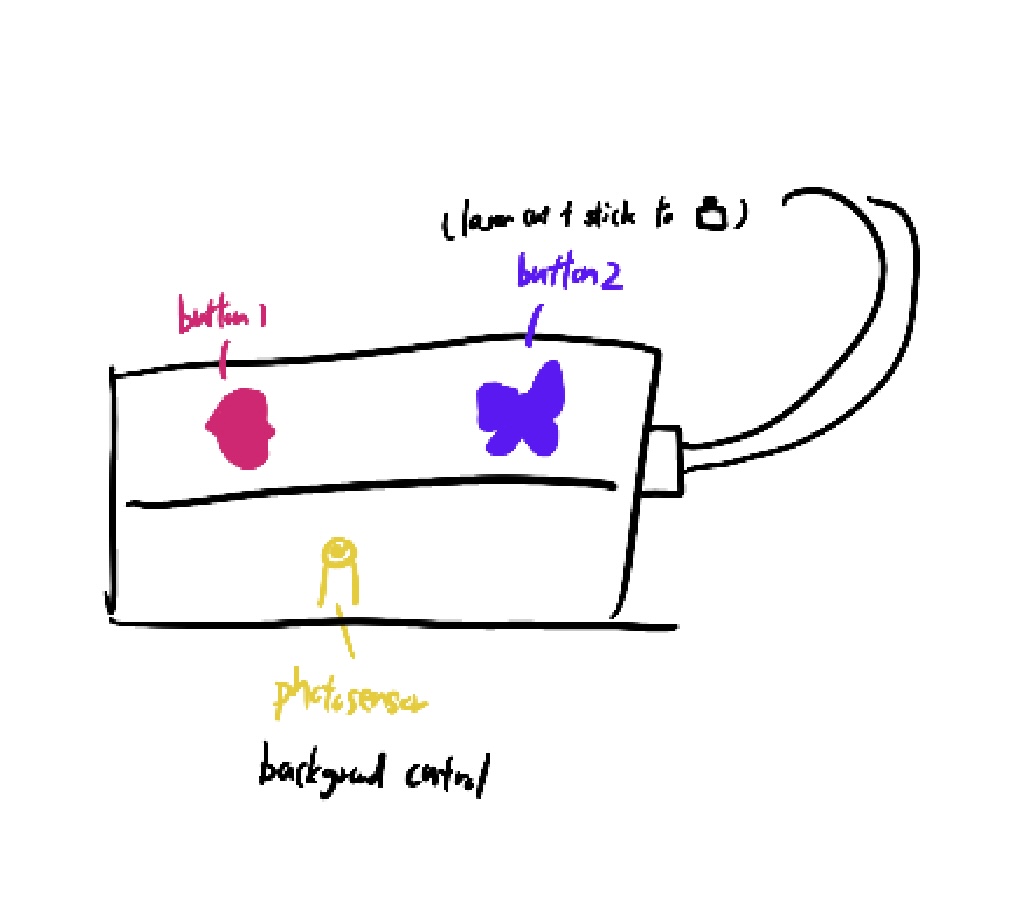 (laser cut & stick to )
button 2
button 1
photosensor
background control